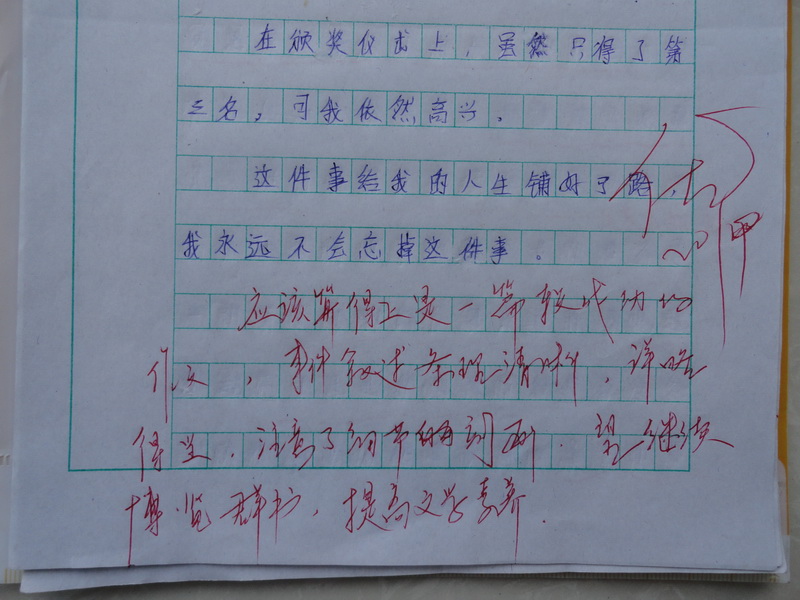 在颁奖仪式上，虽然只得了第
三名，可我依然高兴。
这件事给我的人生铺好了路，
我永远不会忘掉这件事。
甲
应该算得上是一篇较成功的
作文，事件叙述条理清晰，详略
得当，注意了细节的刻画．望继续
博览群书，提高文学素养．